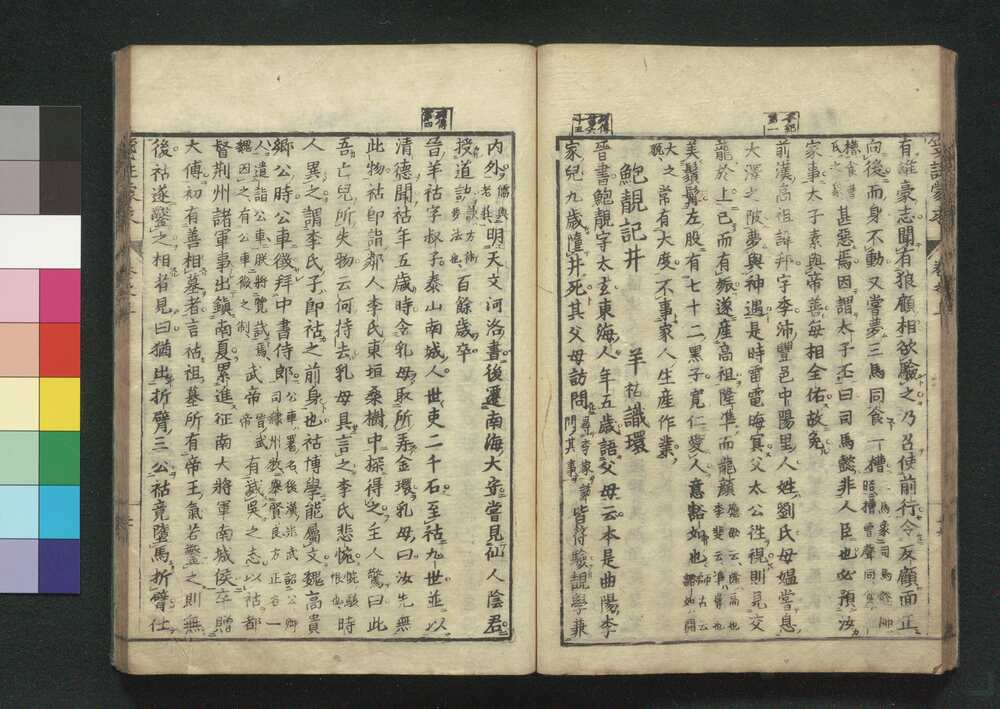 有雄豪志聞有狼顧相欲驗之乃召使前行令反顧面正
向後而身不動又嘗夢三馬同食一槽
甚惡焉因謂太子丕曰司馬懿非人臣也必預汝
家事太子素與帝善每相全佑故免
前漢高祖諱邦字季沛豐邑中陽里人姓劉氏母媼嘗息
大澤之陂夢與神遇是時雷電晦冥父太公往視則見交
龍於上已而有娠遂產高祖隆準而龍顏
美鬚髯左股有七十二黑子寬仁愛人意豁如也
常有大度不事家人生產作業
鮑靚記井 羊祜識環
晉書鮑靚字太玄東海人年五歲語父母云本是曲陽李
家兒九歲墮井死其父母訪問皆符驗靚學兼
內外明天文河洛書後遷南海大守嘗見仙人陰君
授道訣百餘歲卒
晉羊祜字叔子泰山南城人世吏二千石至祜九世並以
清德聞祜年五歲時令乳母取所弄金環乳母曰汝先無
此物祜即詣鄰人李氏東垣桑樹中探得之主人驚曰此
吾亡兒所失物云何持去乳母具言之李氏悲惋時
人異之謂李氏子即祜之前身也祜博學能屬文魏高貴
鄉公時公車徵拜中書侍郎
武帝有滅吳之志以祜都
督荊州諸軍事出鎮南夏累進征南大將軍南城侯卒贈
大傅初有善相墓者言祜祖墓所有帝王氣若鑿之則無
後祜遂鑿之相者見曰猶出折臂三公祜竟墮馬折臂仕